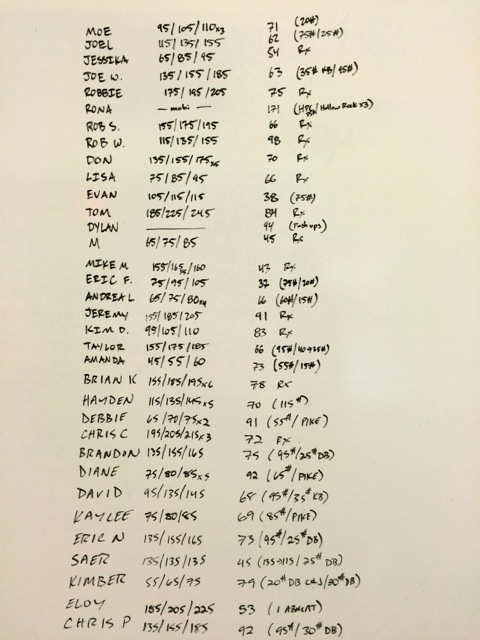 MOE 95/105/110x3 71 (20#)
JOEL 115/135/155 62 (75#/25#)
JESSIKA 65/85/95 54 Rx
JOE W. 135/155/185 63 (35# KB/95#)
ROBBIE 175/195/205 75 Rx
RONA — mobi — 171 Hollow Rock x3)
ROB S. 155/175/195 66 Rx
ROB W. 115/135/155 98 Rx
DON 135/155/175x5 70 Rx
LISA 75/85/95 66 Rx
EVAN 105/115/115 38 (75#)
TOM 185/225/245 84 Rx
DYLAN ——— 94 (Push ups)
M 65/75/85 45 Rx
MIKE M 155/165/160 43 Rx
ERIC F. 75/95/105 32 (75#/20#)
ANDREA L 65/75/80x4 66 (60#/15#)
JEREMY 155/185/205 91 Rx
KIM D. 95/105/110 83 Rx
TAYLOR 155/175/185 66
AMANDA 45/55/60 73 (55#/15#)
BRIAN K 155/185/195x6 78 RX
HAYDEN 115/135/145x5 70 (115#)
DEBBIE 65/70/75x2 91 (55#/PIKE)
CHRIS C 195/205/215x3 72 RX
BRANDON 135/155/165 75 (95#/25# DB)
DIANE 75/80/85x5 92 (65#/PIKE)
DAVID 95/135/145 68 (95#/35# KB)
KAYLEE 75/80/85 69 (85#/PIKE)
ERIC N 135/155/165 73 (95#/25# DB)
SAER 135/135/135 45 (135→115/25# DB)
KIMBER 55/65/75 79 (20# DB C&J/20# DB)
ELOY 185/205/225 53 (1 ABMAT)
CHRIS P 135/155/185 92 (95#/30# DB)